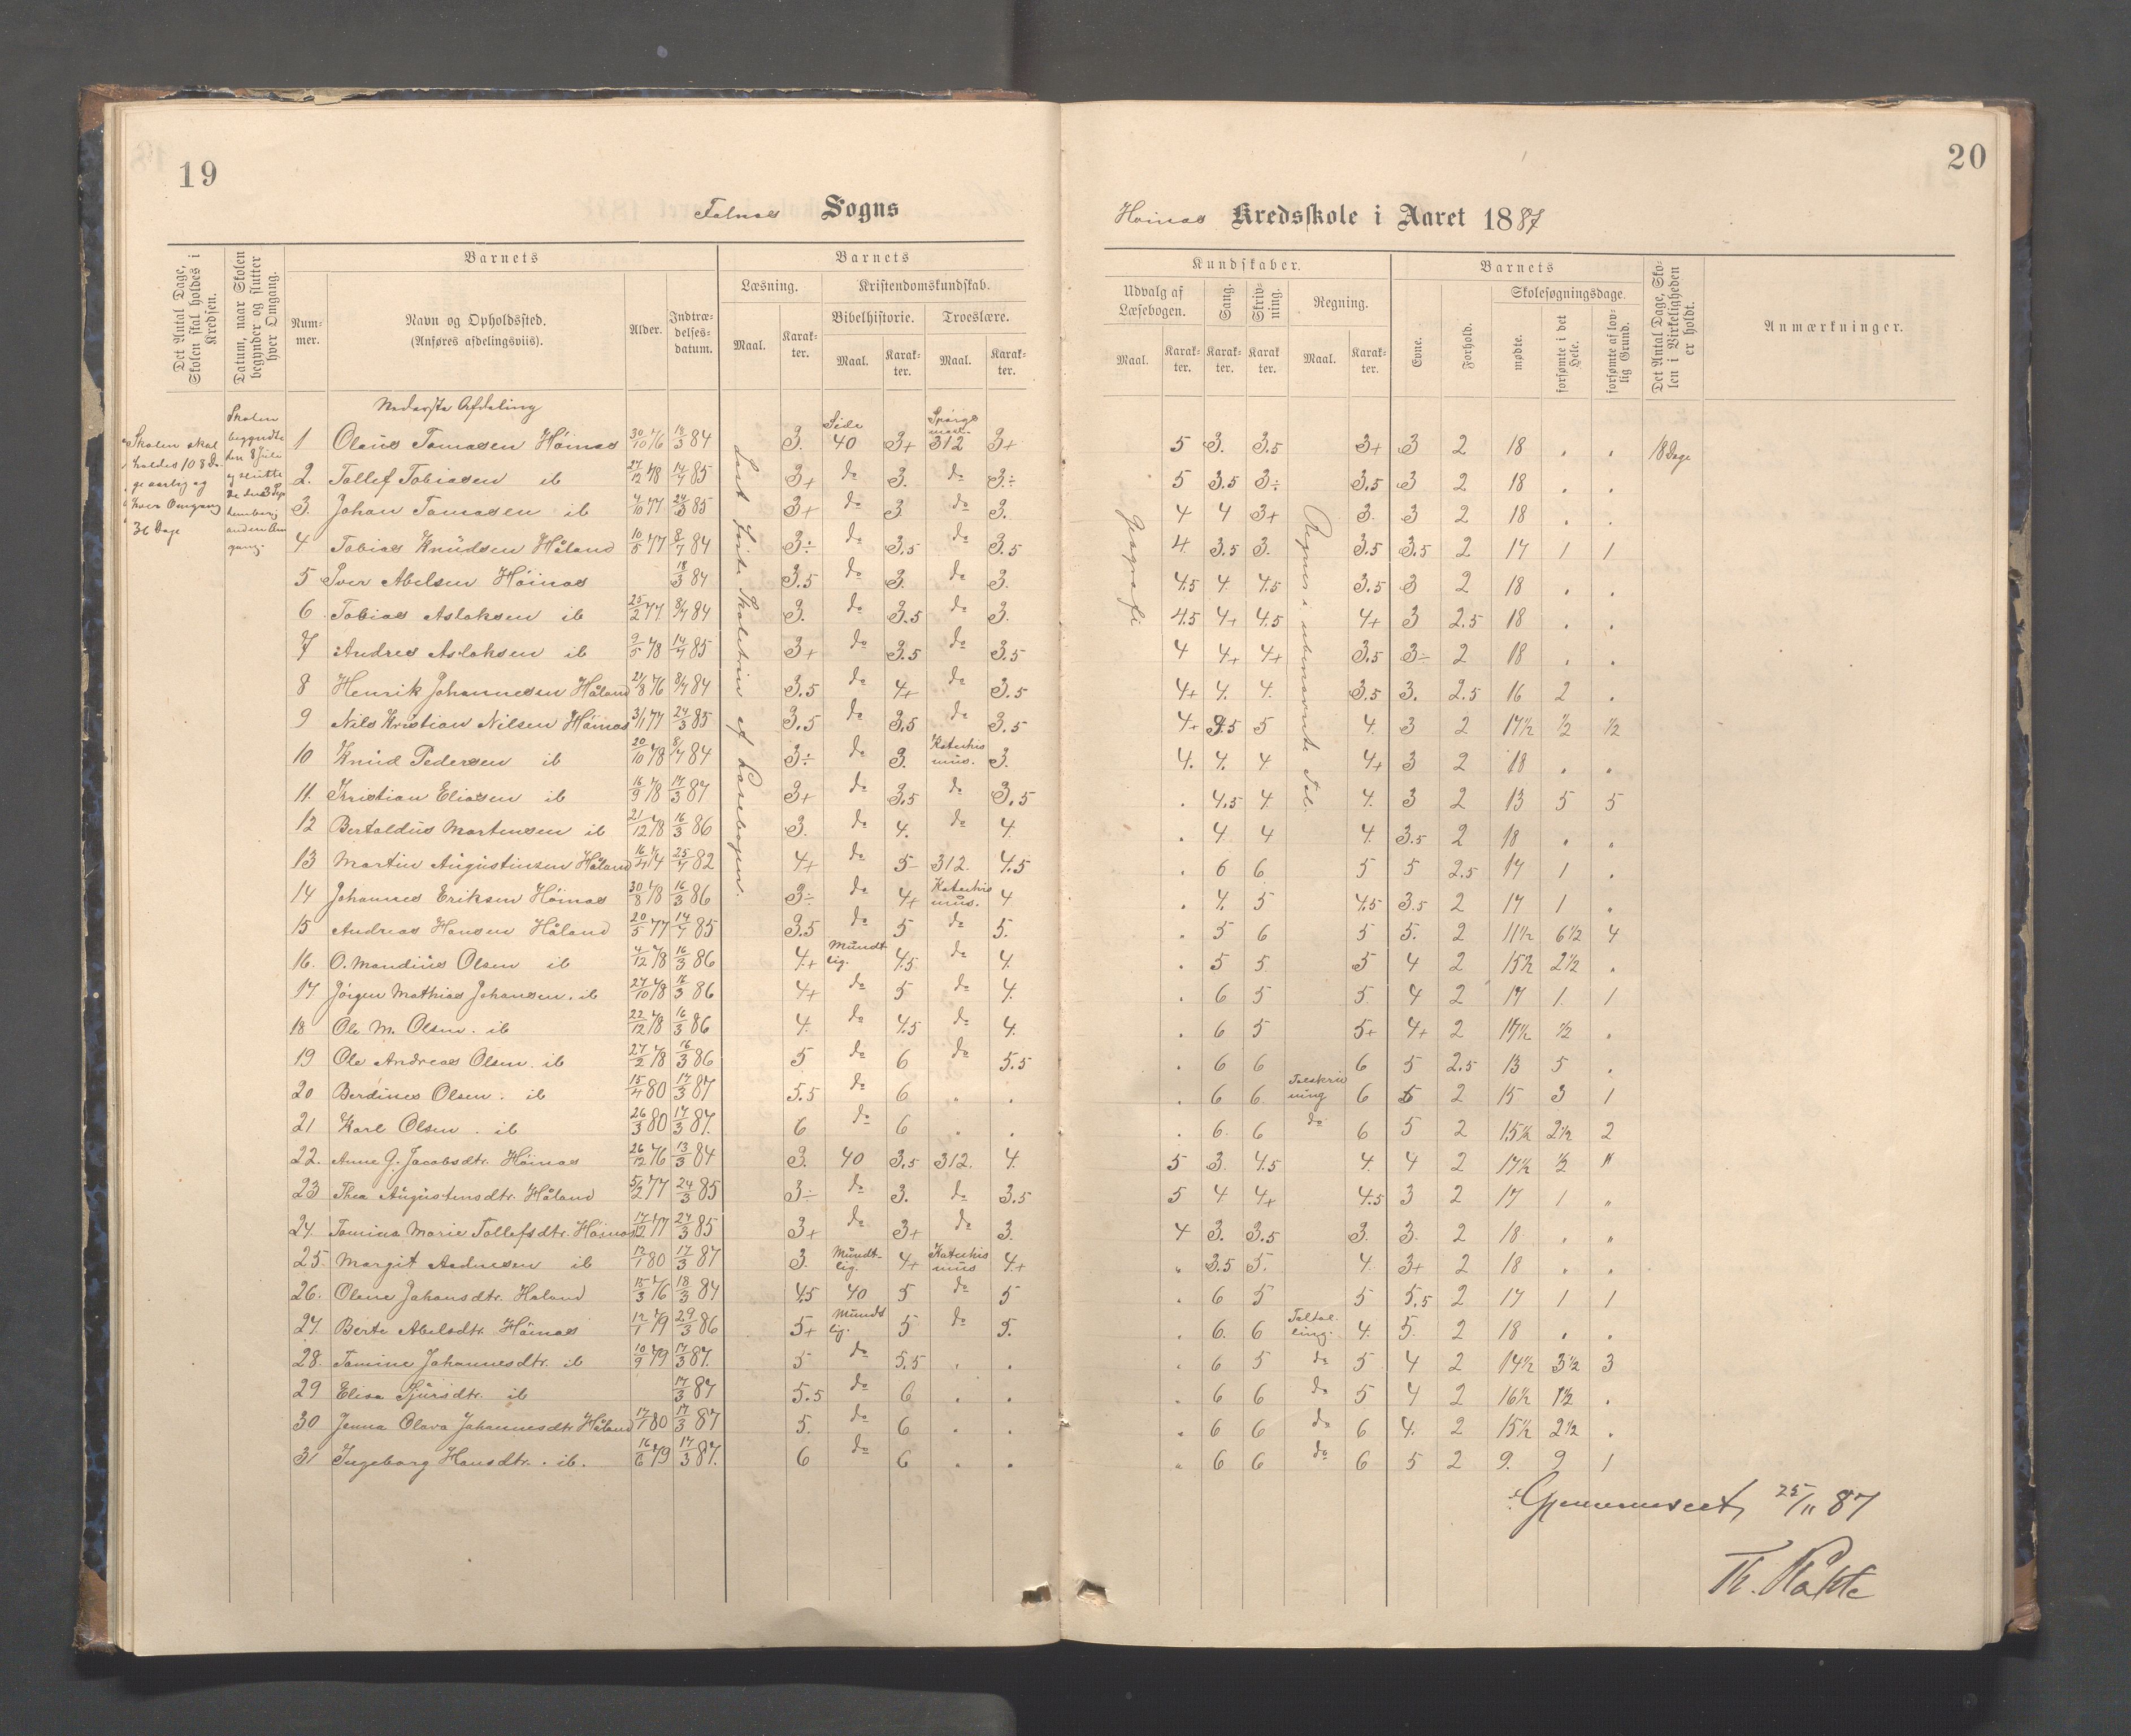 19
Falnes Sogns
Det Antal Dage, Skolen skal holdes i Kredsen.
Datum, naar Skolen begynder og slutter hver Omgang.
Barnets
Num-mer.
Navn og Opholdssted.
(Anføres afdelingsviis).
Alder.
Indtræ-delses-datum.
Barnets
Læsning.
Maal.
Karak-ter.
Kristendomskundskab.
Bibelhistorie.
Maal.
Karak-ter.
Troeslære.
Maal.
Karak-ter.
Skolen skal holdes 108 Da-ge aarlig og hver Omgang 36 Dage
Skolen begyndte den 8 Juli og slutte
Nederste Afdeling
Læst første Skoletrin af Læsebogen.
1 Olaus Tomasen Höinas 30/10 76 18/3 84 3. Side 40 3+ Spörgs maal 312 3+
2. Tollef Tobiasen ib 27/12 78 14/4 85 3+ do 3. do 3÷
3. Johan Tomasen ib 4/10 77 24/3 85 3+ do 3 do 3.
4 Tobias Knudsen Håland 10/5 77 8/7 84 3÷ do 3.5 do 3.5
5 Iver Abelsen Höinas 18/3 84 3.5 do 3. do 3.
6 Tobias Aslaksen ib 25/2 77 8/7 84 3. do 3.5 do 3.
7 Andres Aslaksen ib 9/5 78 14/4 85 3+ do 3.5 do 3.5
8 Henrik Johannesen Håland 21/8 76 8/7 84 3.5 do 4+ do 3.5
9 Nils Kristian Nilsen Höinas 3/1 77 24/3 85 3.5 do 3.5 do 3.5
10 Knud Pedersen ib 20/10 78 8/7 84 3÷ do 3. Katekis mus. 3.
11. Kristian Eliasen ib 16/9 78 17/3 87 3+ do 3.5 do 3.5
12 Bertoldus Martensen ib 21/12 78 16/3 86 3. do 4. do 4.
13 Martin Augustinsen Håland 16/4 74 25/4 82 4+ do 5 312. 4.5
14 Johannes Eriksen Höinas 30/8 78 16/3 86 3÷ do 4+ Katekis mus. 4
15 Andreas Hansen Håland 20/5 77 14/4 85 3.5 do 5 do 5.
16. O. Mandius Olsen ib 4/12 78 16/3 86 4+ Mundt lig. 4.5 do 4.
17 Jörgen Mathias Johansen. ib 27/10 78 16/3 86 4+ do 5 do 4.
18 Ole M. Olsen. ib 22/12 78 16/3 86 4. do 4.5 do 4.
19 Ole Andreas Olsen. ib 27/2 78 16/3 86 5 do 6 do 5.5
20 Berdines Olsen. ib 15/4 80 17/3 87 5.5 do 6 . .
21 Karl Olsen. ib 26/3 80 17/3 87. 6 do 6 . .
22. Anne G. Jacobsdtr. Höinas 26/12 76 13/3 84 3. 40 3.5 312. 4.
23 Thea Augustinsdtr. Håland 5/2 77 24/3 85 3÷ do 3. do 3.5
24. Tomina Marie Tollefsdtr. Höinas 17/12 77 24/3 85 3+ do 3+ do 3.
25. Margit Aadnesen ib 13/1 80 17/3 87 3. Mundt-lig. 4+ Katekis mus 4+
26. Olene Johansdtr. Håland 15/3 76 18/3 84 4.5 40 5 do 5
27. Berte Abelsdtr. Höinas 12/1 79 29/3 86 5+ Mundt lig. 5 do 5.
28. Tomine Johannesdtr. ib 10/9 79 17/3 87. 5 do 5.5 . .
29 Elisa Sjursdtr. ib 17/3 87 5.5 do 6 . .
30 Jenna Olava Johannesdtr. Håland 17/1 80 17/3 87 5. do 6 . .
31 Ingeborg Hansdtr. ib. 16/6 79 17/3 87. 6 do 6 . .
20
Höinas Kredsskole i Aaret 1887
Kundskaber.
Udvalg af Læsebogen.
Maal.
Karak-ter.
Sang.
Karak-ter.
Skriv-ning.
Karak ter.
Regning.
Maal.
Karak-ter.
Barnets
Evne.
Forhold.
Skolesøgningsdage.
mødte.
forsømte i det Hele.
forsømte af lov-lig Grund.
Det Antal Dage, Sko-len i Virkeligheden er holdt.
Anmærkninger.
Geografi
Regnes i ubenævnte Tal.
5 3. 3.5 3+ 3 2 18 . . 18 Dage
5 3.5 3÷ 3.5 3 2 18 . .
4 4 3+ 3. 3 2 18 . .
4. 3.5 3. 3.5 3.5 2 17 1 1
4.5 4. 4.5 3.5 3 2 18 . .
4.5 4+ 4.5 4+ 3 2.5 18 . .
4 4+ 4+ 3.5 3÷ 2 18 . .
4+ 4. 4. 3.5 3. 2.5 16 2 .
4+ 3.5 5 4. 3 2 17½ ½ ½
4. 4. 4 4+ 3 2 18 . .
. 4.5 4. 4. 3 2 13 5 5
. 4. 4 4. 3.5 2 18 . .
. 6 6 5 5 2.5 17 1 .
. 4. 5 4.5 3.5 2 17 1 .
. 5 6 5 5. 2 11½ 6½ 4
. 5 5 5 4 2 15½ 2½ .
. 6 5 5. 4 2 17 1. 1
. 6 5 5+ 4+ 2 17½ ½ .
. 6 6 6 5 2.5 13 5 .
. 6 6 Talskriv ning 6 5 2 15 3 1
. 6. 6 do 6 5 2 15½ 2½ 2
5 3. 4.5 4. 4 2 17½ ½ "
5 4 4+ 4.5 3 2 17 1 "
4 3. 3.5 3. 3. 2 18 . "
" 3.5 5. 4. 3+ 2 18 . .
. 6 5 5 5.5 2 17 1 1
. 6. 6 Taltæl ling. 4. 5. 2 18 . .
. 6 5 do 5 4 2 14½ 3½ 3
. 6 6 do 5 4 2 16½ 1½ .
. 6 6 do 6 4. 2 15½ 2½ .
" 6 6 do 6 5 2 9. 9 1
Gjennemseet, 25/11 87